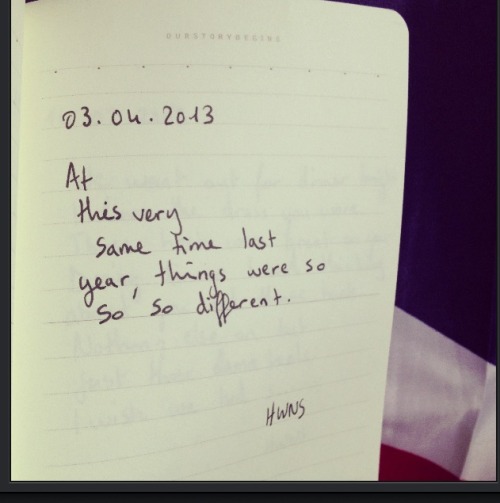 OURSTORYBEGINS
03.04.2013
At
this very
same time last
year, things were so
so so different.
HWNS